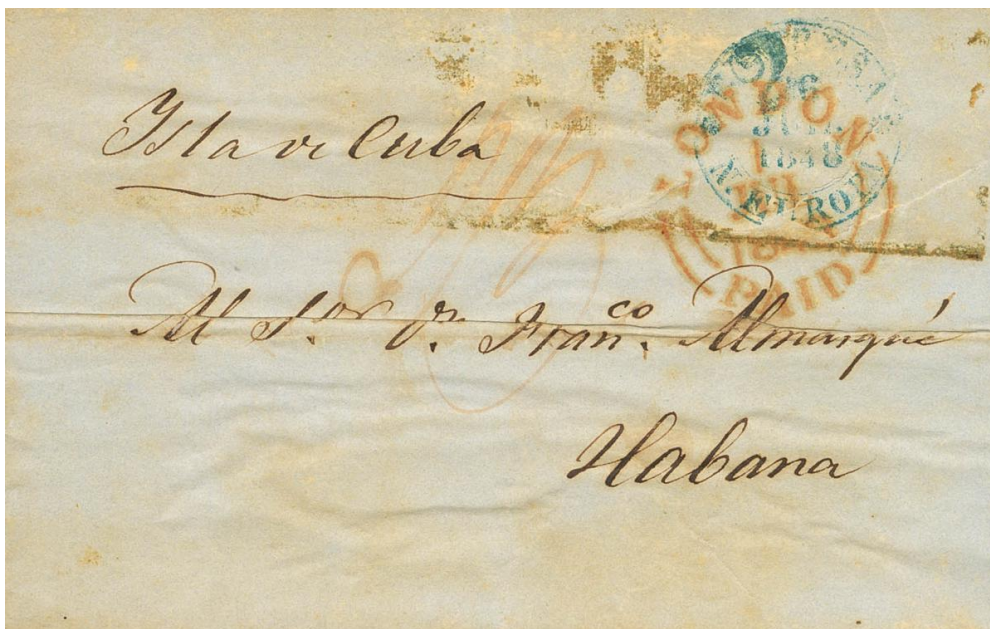 Isla de Cuba
LONDON
PAID
JUL
1848
N. ETROY
Al S.or D.n Fran.co Almarqué
Habana